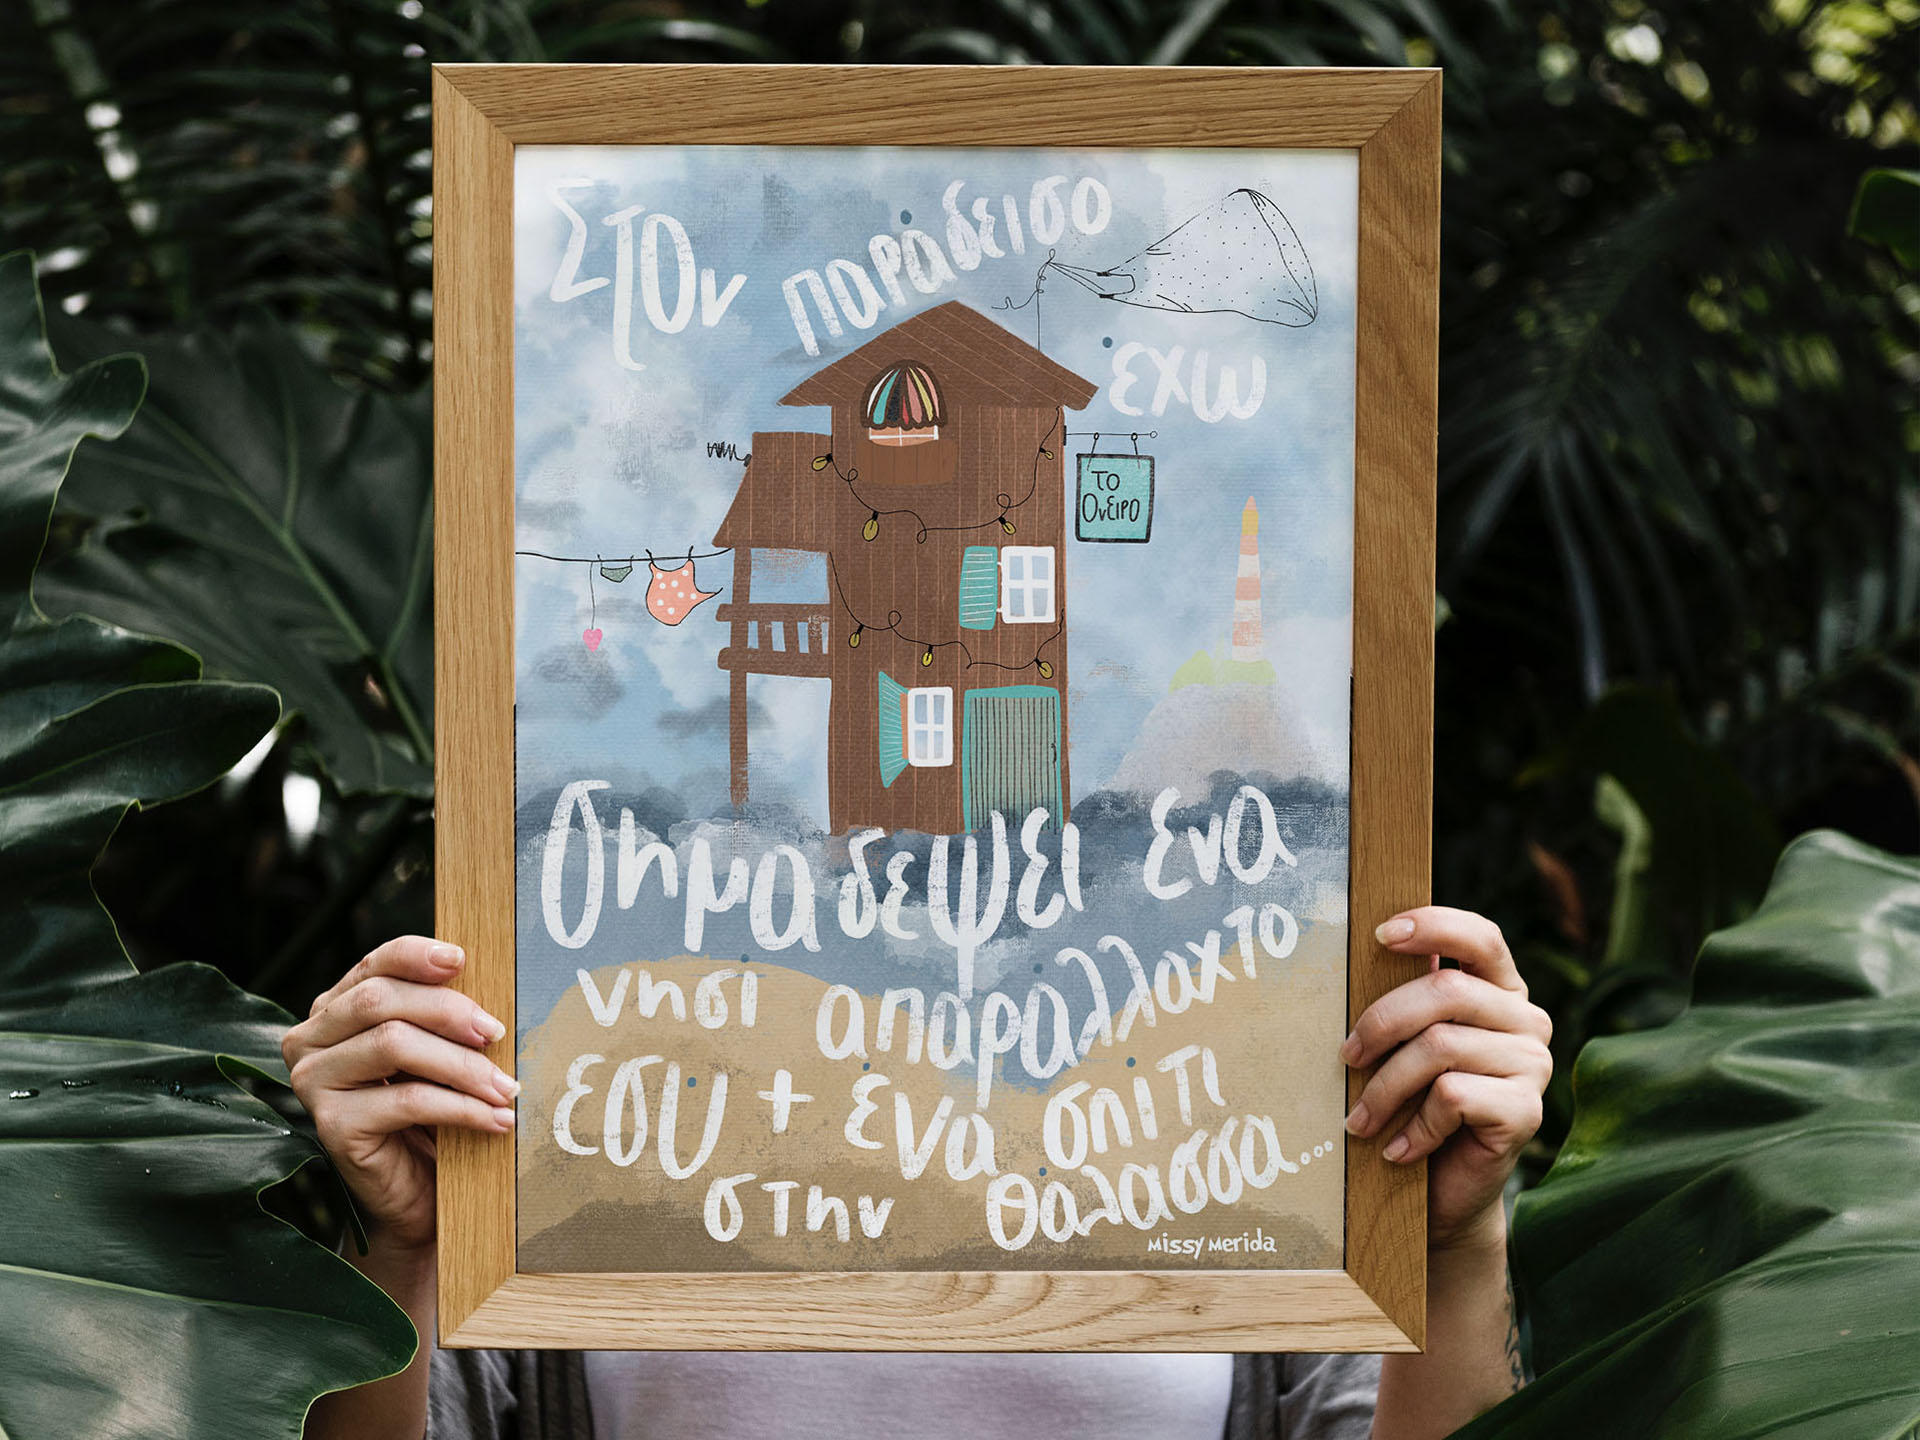 Στον παράδεισο
έχω
Το
Ονειρο
σημαδέψει ένα
νησί απαράλλαχτο
εσύ + ένα σπίτι
στην θάλασσα...
Missy Merida